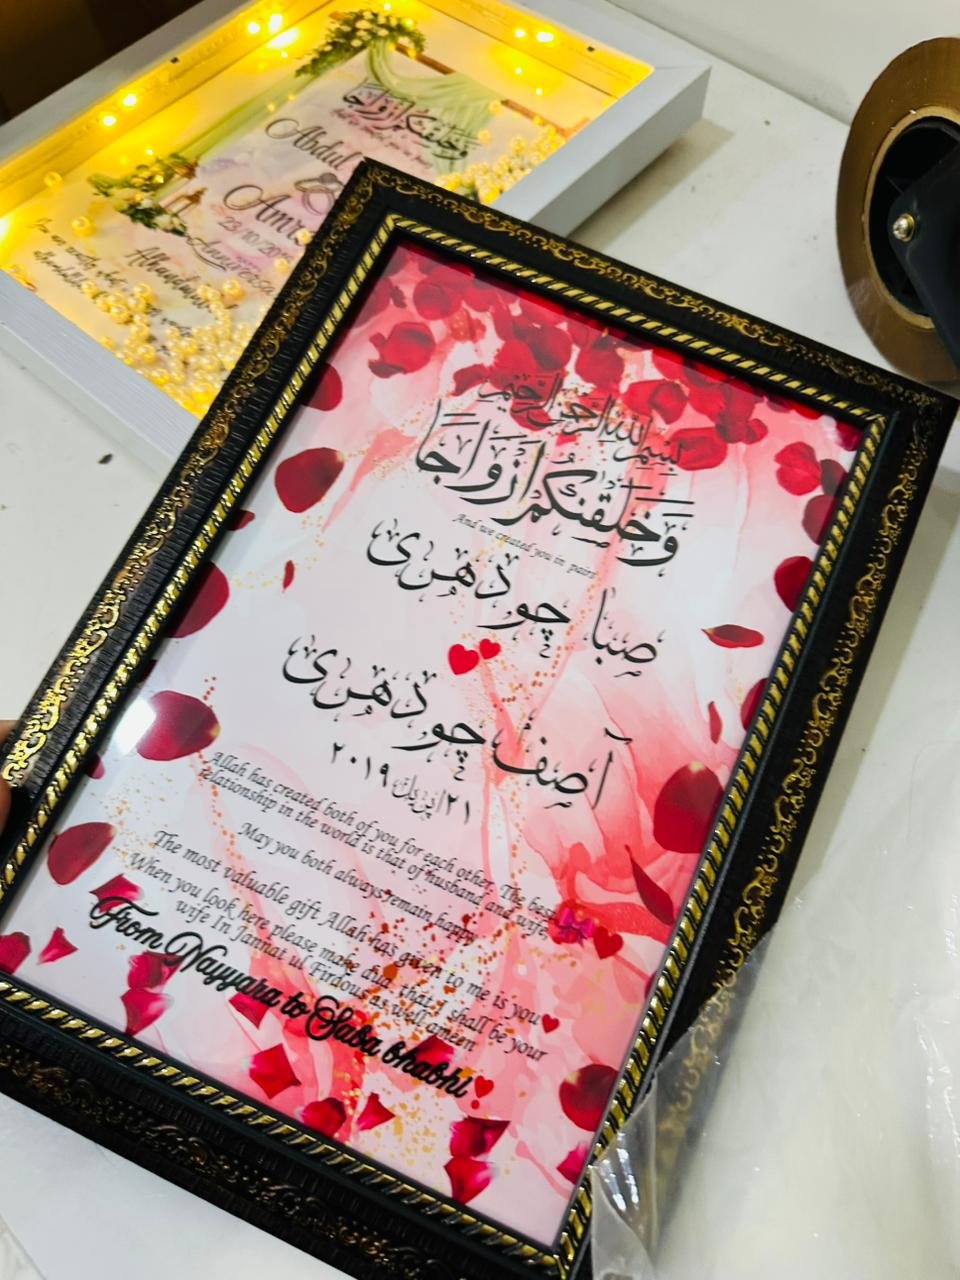 وخلقنكم ازواجا
Abdul
23/10/20
بسم الله الرحمن الرحيم
وَخَلَقْنٰكُمْ اَزْوَاجًا
And we created you in pairs
صبا چودھری
آصف چودھری
۲۱ اپریل ۲۰۱۹
Allah has created both of you for each other. The best
relationship in the world is that of husband and wife.
May you both always remain happy
The most valuable gift Allah has given to me is you
When you look here please make dua that I shall be your
wife In Jannat ul Firdous as well ameen
From Nayyara to Saba bhabhi